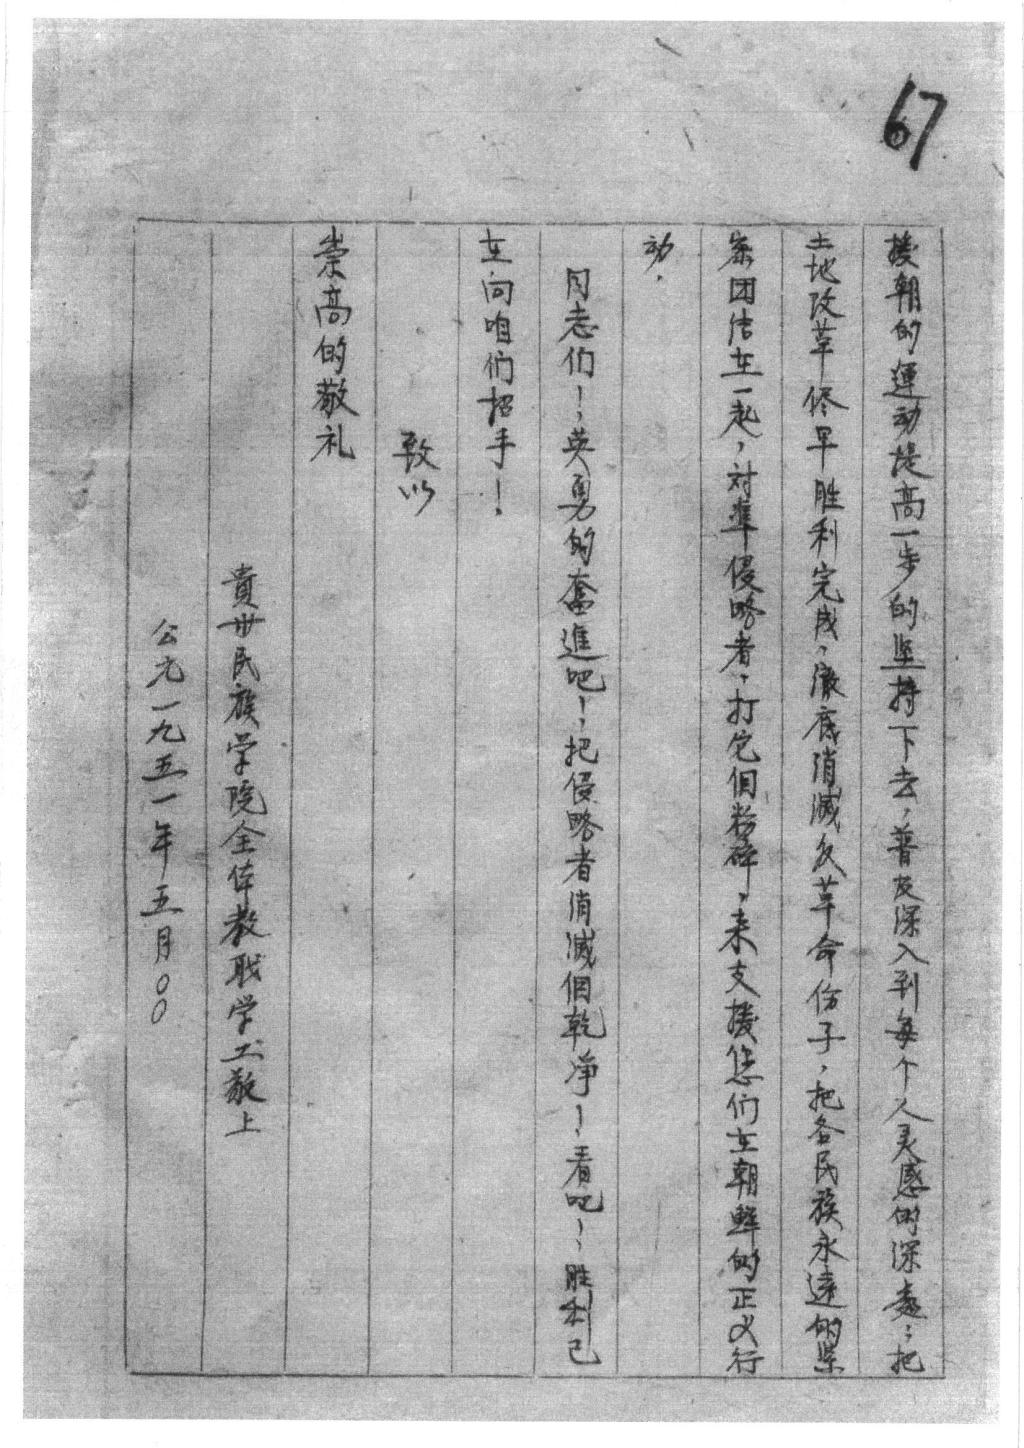 67
援朝的運动提高一步的坚持下去，普及深入到每个人灵感的深處；把
土地改革終早胜利完成，澈底消滅反革命份子，把各民族永遠的緊
紧团结在一起，对準侵略者，打它個粉碎，来支援您们在朝鲜的正义行
动．
同志们！，英勇的奮進吧！，把侵略者消滅個乾净！，看吧！，胜利已
在向咱们招手！
致以
崇高的敬礼
貴州民族学院全体教职学工敬上
公元一九五一年五月〇〇